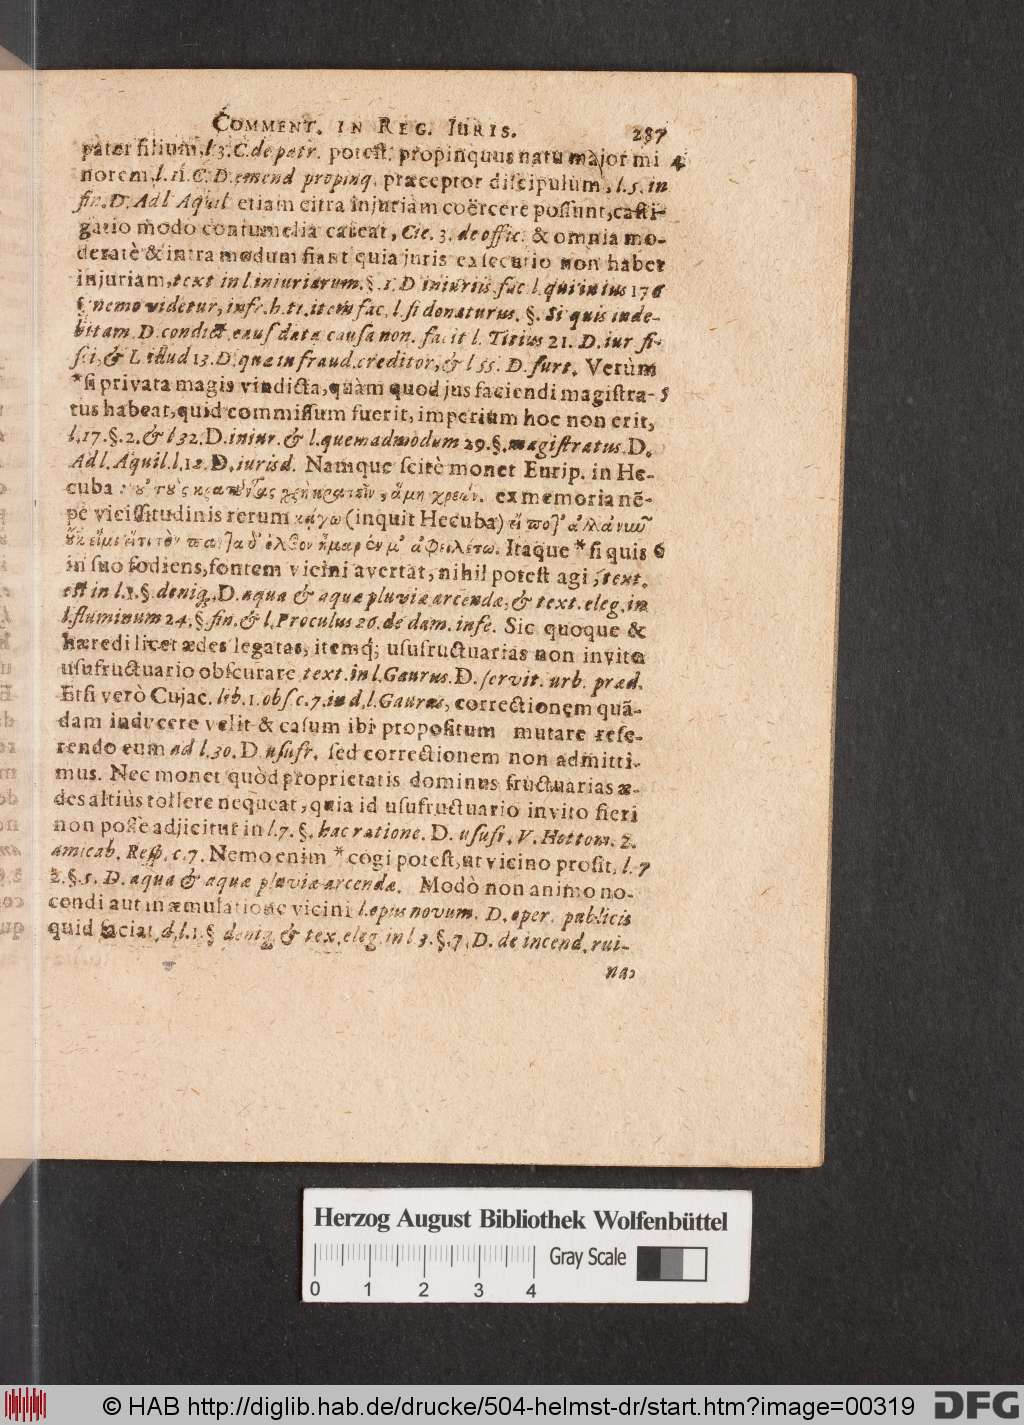 COMMENT. IN REG. IURIS. 287
pater filium, l. 3. C. de patr. potest. propinquus natu major mi 4
norem, l. 11. C. D. emend propinq. præceptor discipulum, l. 5. in
fin. D. Ad l Aquil etiam citra injuriam coërcere possunt, casti-
gatio modo contumelia careat, Cic. 3. de offic. & omnia mo-
deratè & intra modum fiant quia juris exsecutio non habet
injuriam, text in l. iniuriarum. §. 1. D iniuriis. fac l. qui in ius 176
§ nemo videtur, infr. h. tt. item fac. l. si donaturus. §. Si quis inde-
bitam. D. condict. caus data causa non. facit l. Titius 21. D. iur fi-
sci, & L illud 13. D. quæ in fraud. creditor, & l 55. D. furt. Verùm
*si privata magis vindicta, quàm quod jus faciendi magistra- 5
tus habeat, quid commissum fuerit, imperium hoc non erit,
l. 17. §. 2. & l 32. D. iniur. & l. quemadmodum 29. §. magistratus. D.
Ad l. Aquil. l. 12. D. iurisd. Namque scitè monet Eurip. in He-
cuba : ex memoria nē-
pè vicissitudinis rerum κἀγω (inquit Hecuba)
Itaque * si quis 6
in suo fodiens, fontem vicini avertat, nihil potest agi, text.
est in l. 1. §. deniq, D. aqua & aquæ pluviæ arcendæ, & text. eleg. in
l. fluminum 24. §. fin. & l. Proculus 26. de dam. infe. Sic quoque &
hæredi licet ædes legatas, itemq; ususfructuarias non invito
usufructuario obscurare text. in l. Gaurus. D. servit. urb. præd.
Etsi verò Cujac. lib. 1. obs. c. 7. in d. l. Gaurus, correctionem quā-
dam inducere velit & casum ibi propositum mutare refe-
rendo eum ad l. 30. D usufr. sed correctionem non admitti-
mus. Nec monet quòd proprietatis dominus fructuarias æ-
des altiùs tollere nequeat, quia id usufructuario invito fieri
non posse adjicitur in l. 7. §. hac ratione. D. usufr. V. Hottom. 2.
amicab. Resp. c. 7. Nemo enim * cogi potest, ut vicino prosit, l. 7
2. §. 5. D. aqua & aquæ pluviæ arcendæ. Modò non animo no-
cendi aut in æmulatione vicini l. opus novum. D. oper. publicis
quid faciat, d. l. 1. § deniq. & tex. eleg. in l 3. §. 7. D. de incend. rui-
na:
Herzog August Bibliothek Wolfenbüttel
Gray Scale
0 1 2 3 4
© HAB http://diglib.hab.de/drucke/504-helmst-dr/start.htm?image=00319
DFG